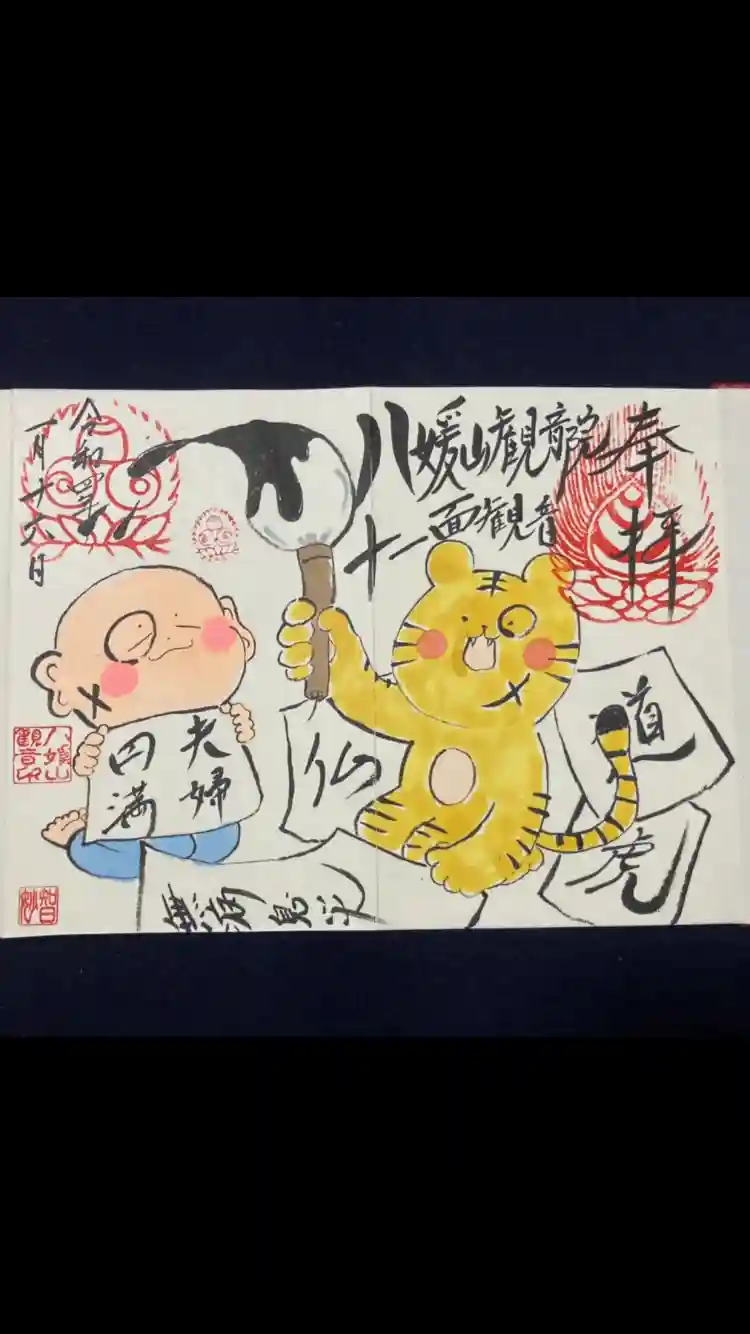 奉拝
八媛山観音院
十一面観音
令和四年
一月十六日
夫婦
円満
仏
道
虎
無病息災
八媛山
観音印
智
妙